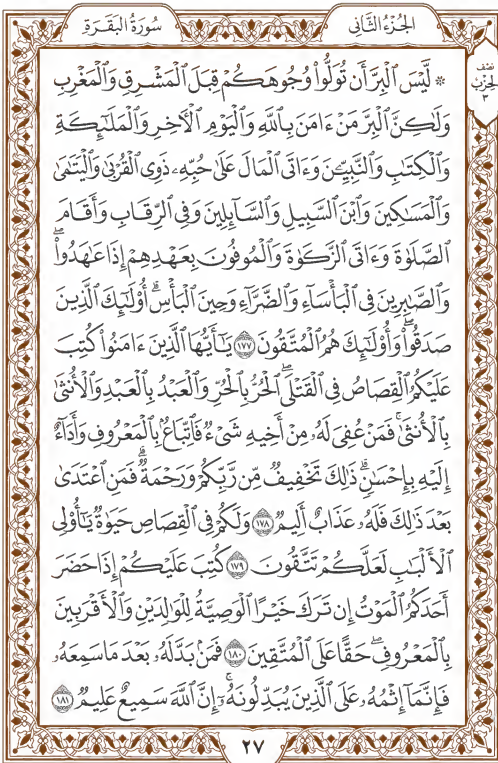 الجُزْءُ الثَّانِي
سُورَةُ البَقَرَةِ
نصف
الحزب
٣
۞ لَّيْسَ ٱلْبِرَّ أَن تُوَلُّوا۟ وُجُوهَكُمْ قِبَلَ ٱلْمَشْرِقِ وَٱلْمَغْرِبِ
وَلَٰكِنَّ ٱلْبِرَّ مَنْ ءَامَنَ بِٱللَّهِ وَٱلْيَوْمِ ٱلْءَاخِرِ وَٱلْمَلَٰٓئِكَةِ
وَٱلْكِتَٰبِ وَٱلنَّبِيِّـۧنَ وَءَاتَى ٱلْمَالَ عَلَىٰ حُبِّهِۦ ذَوِى ٱلْقُرْبَىٰ وَٱلْيَتَٰمَىٰ
وَٱلْمَسَٰكِينَ وَٱبْنَ ٱلسَّبِيلِ وَٱلسَّآئِلِينَ وَفِى ٱلرِّقَابِ وَأَقَامَ
ٱلصَّلَوٰةَ وَءَاتَى ٱلزَّكَوٰةَ وَٱلْمُوفُونَ بِعَهْدِهِمْ إِذَا عَٰهَدُوا۟ ۖ
وَٱلصَّٰبِرِينَ فِى ٱلْبَأْسَآءِ وَٱلضَّرَّآءِ وَحِينَ ٱلْبَأْسِ ۗ أُو۟لَٰٓئِكَ ٱلَّذِينَ
صَدَقُوا۟ ۖ وَأُو۟لَٰٓئِكَ هُمُ ٱلْمُتَّقُونَ ١٧٧ يَٰٓأَيُّهَا ٱلَّذِينَ ءَامَنُوا۟ كُتِبَ
عَلَيْكُمُ ٱلْقِصَاصُ فِى ٱلْقَتْلَى ۖ ٱلْحُرُّ بِٱلْحُرِّ وَٱلْعَبْدُ بِٱلْعَبْدِ وَٱلْأُنثَىٰ
بِٱلْأُنثَىٰ ۚ فَمَنْ عُفِىَ لَهُۥ مِنْ أَخِيهِ شَىْءٌ فَٱتِّبَاعٌۢ بِٱلْمَعْرُوفِ وَأَدَآءٌ
إِلَيْهِ بِإِحْسَٰنٍ ۗ ذَٰلِكَ تَخْفِيفٌ مِّن رَّبِّكُمْ وَرَحْمَةٌ ۗ فَمَنِ ٱعْتَدَىٰ
بَعْدَ ذَٰلِكَ فَلَهُۥ عَذَابٌ أَلِيمٌ ١٧٨ وَلَكُمْ فِى ٱلْقِصَاصِ حَيَوٰةٌ يَٰٓأُو۟لِى
ٱلْأَلْبَٰبِ لَعَلَّكُمْ تَتَّقُونَ ١٧٩ كُتِبَ عَلَيْكُمْ إِذَا حَضَرَ
أَحَدَكُمُ ٱلْمَوْتُ إِن تَرَكَ خَيْرًا ٱلْوَصِيَّةُ لِلْوَٰلِدَيْنِ وَٱلْأَقْرَبِينَ
بِٱلْمَعْرُوفِ ۖ حَقًّا عَلَى ٱلْمُتَّقِينَ ١٨٠ فَمَنۢ بَدَّلَهُۥ بَعْدَ مَا سَمِعَهُۥ
فَإِنَّمَآ إِثْمُهُۥ عَلَى ٱلَّذِينَ يُبَدِّلُونَهُۥٓ ۚ إِنَّ ٱللَّهَ سَمِيعٌ عَلِيمٌ ١٨١
٢٧